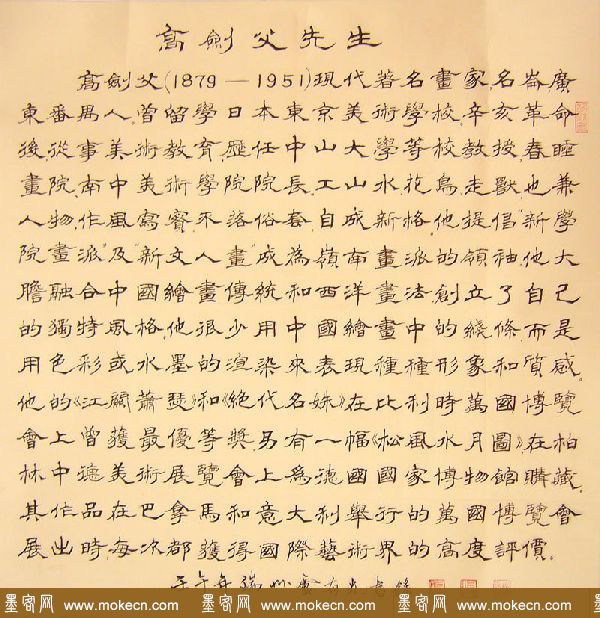 高劍父先生
高劍父(1879—1951)現代著名畫家,名崙廣
東番禺人,曾留學日本東京美術學校,辛亥革命
後,從事美術教育,歷任中山大學等校教授,春睡
畫院,南中美術學院院長,工山水花鳥走獸,也兼
人物,作風寫實,不落俗套,自成新格,他提倡"新學
院畫派"及"新文人畫"成為嶺南畫派的領袖,他大
膽融合中國繪畫傳統和西洋畫法的創立了自己
的獨特風格,他很少用中國繪畫中的綫條,而是
用色彩或水墨的渲染來表現種種形象和質感。
他的《江關蕭瑟》和《絕代名姝》在比利時萬國博覽
會上曾獲最優等獎,另有一幅《松風水月圖》在柏
林中德美術展覽會上為德國國家博物館購藏。
其作品在巴拿馬和意大利舉行的萬國博覽會
展出時,每次都獲得國際藝術界的高度評價。
墨客网 www.mokecn.com 墨客网 www.mokecn.com 墨客网 www.mokecn.com